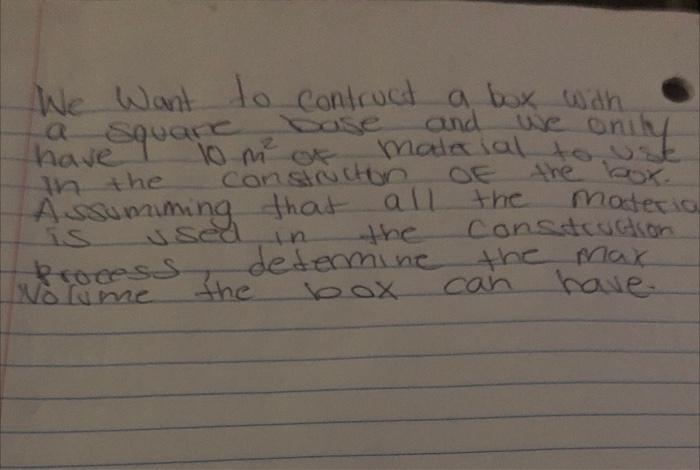 We Want to contruct a box with
a square base and we only
have 10 m² of material to use
in the construction of the box.
Assumiming that all the materia
is used in the construction
process, determine the max
Volume the box can have.